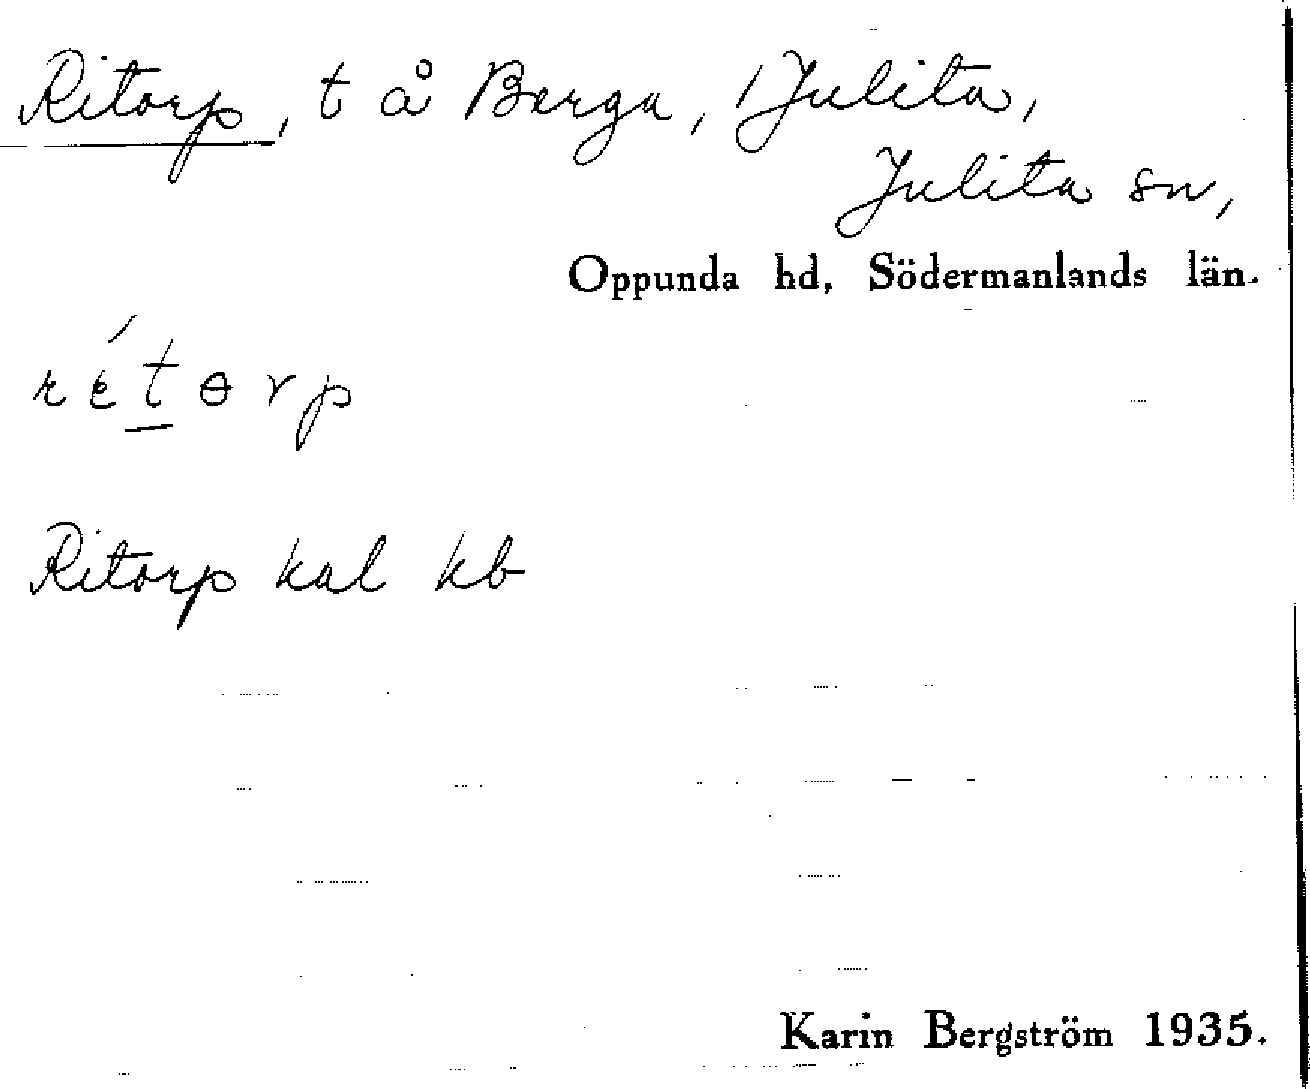 Ritorp, t å Berga, Julita,
Julita sn,
Oppunda hd, Södermanlands län.
rétɵrp
Ritorp kal kb
Karin Bergström 1935.